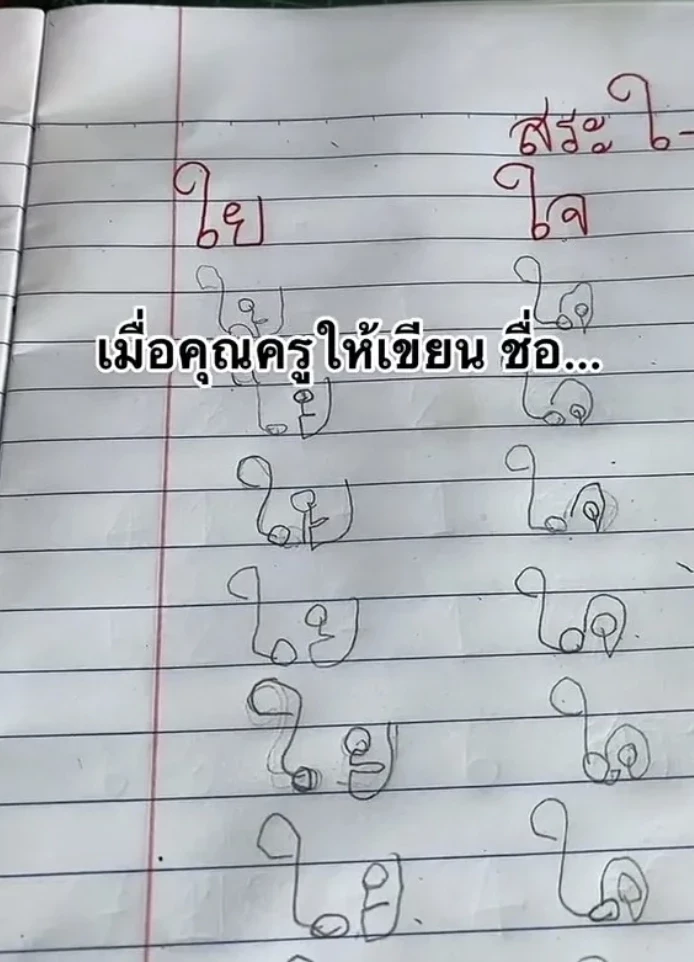 สระ ใ-
ใย ใจ
ใย ใจ
เมื่อคุณครูให้เขียน ชื่อ...
ใย ใจ
ใย ใจ
ใย ใจ
ใย ใจ
ใย ใจ